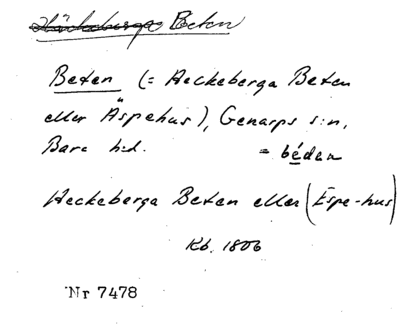 Häckeberga Beten
Beten (= Heckeberga Beten
eller Äspehus), Genarps s:n,
Bara h:d. = béden
Heckeberga Beten eller (Espe-hus)
Kb. 1806
Nr 7478